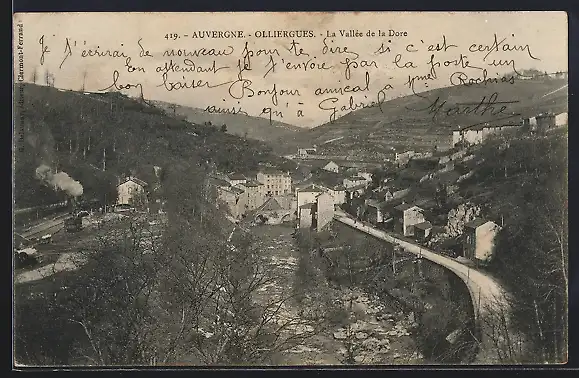 419. - AUVERGNE. - OLLIERGUES. - La Vallée de la Dore
Je t'écrirai de nouveau pour te dire si c'est certain
En attendant je t'envoie par la poste un
bon baiser Bonjour amical à Mme Rochias
ainsi qu'à Gabriel Marthe
Clermont-Ferrand